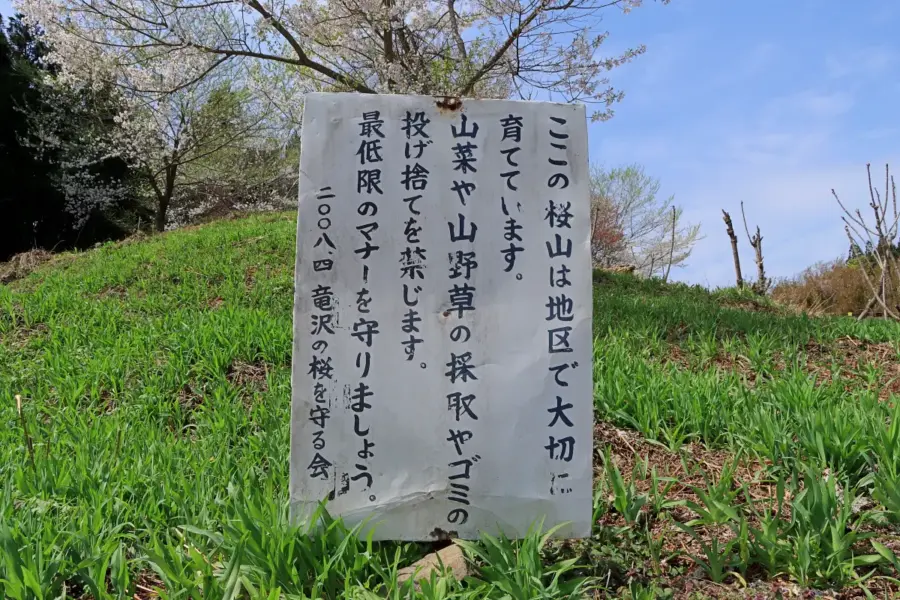 ここの桜山は地区で大切に
育てています。
山菜や山野草の採取やゴミの
投げ捨てを禁じます。
最低限のマナーを守りましょう。
二〇〇八.四 竜沢の桜を守る会